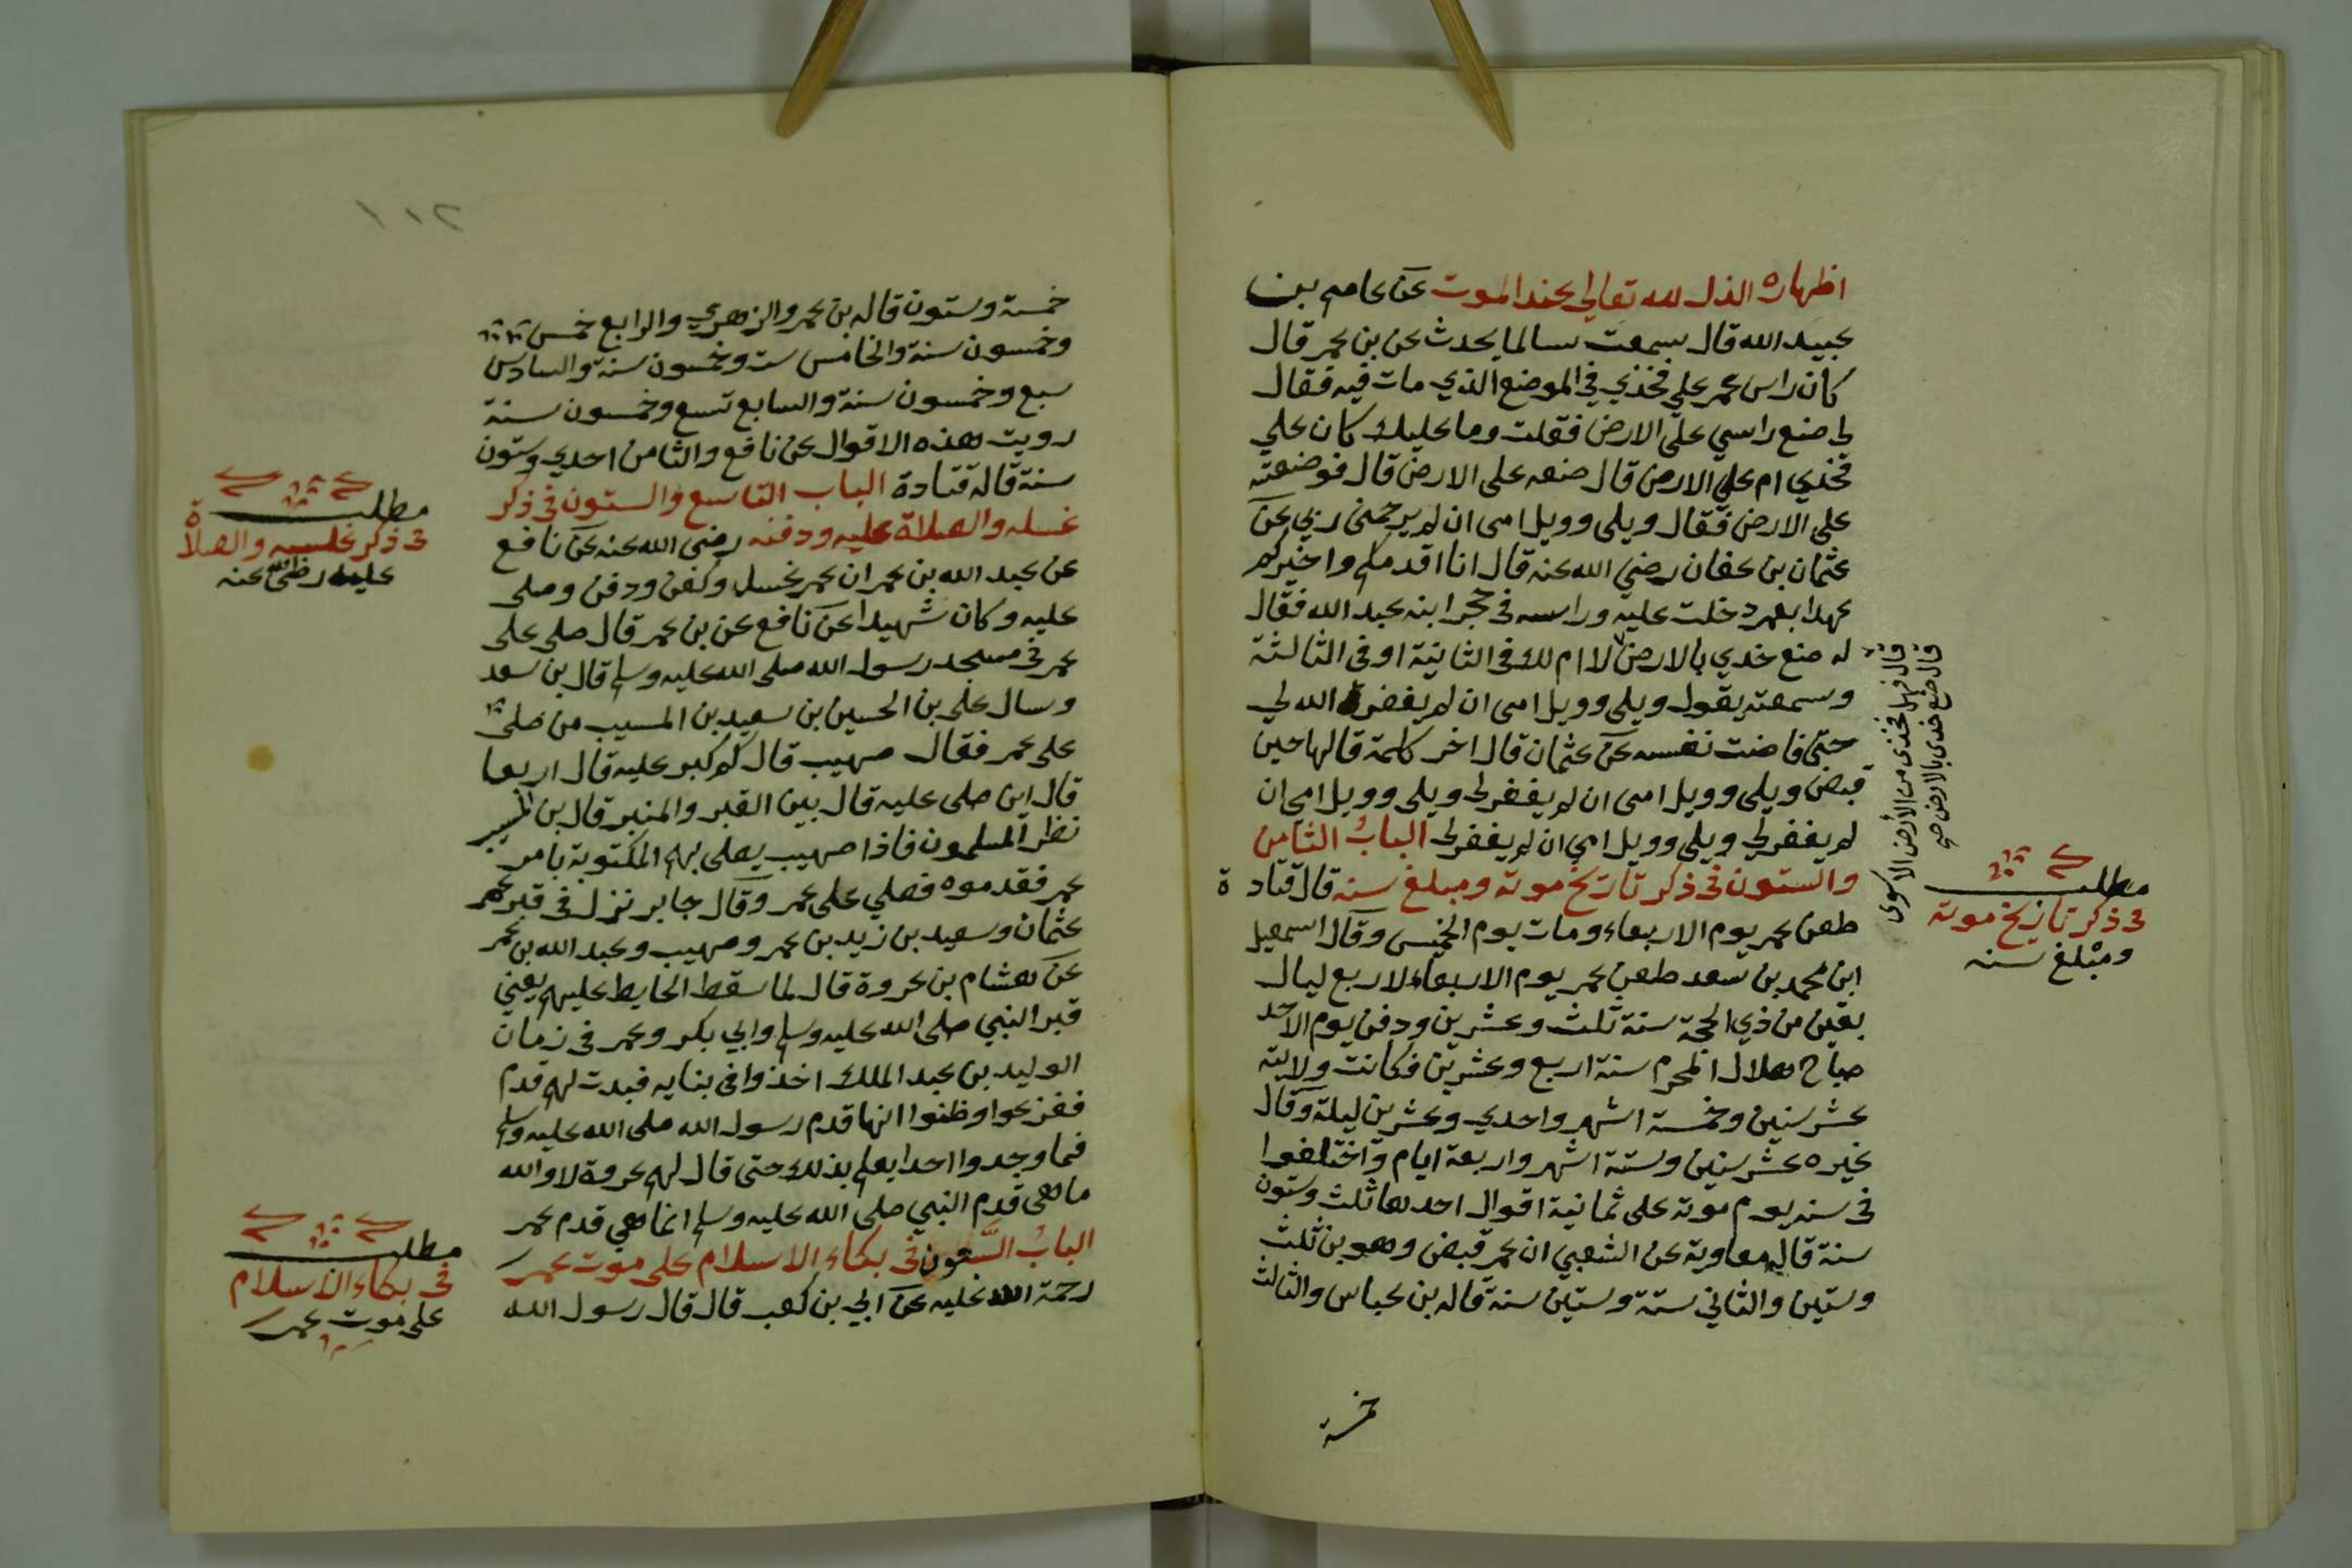 اظهاره الذل لله تعالى عند الموت عن عاصم بن
عبيد الله قال سمعت سالما يحدث عن بن عمر قال
كان راس عمر علي فخذي في الموضع الذي مات فيه فقال
لي ضع راسي على الارض فقلت وما عليك كان علي
فخذي ام علي الارض قال ضعه على الارض قال فوضعته
على الارض فقال ويلى وويل امى ان لم يرحمنى ربي عن
عثمان بن عفان رضي الله عنه قال انا اقدمكم واخبركم
عهدا بعمر دخلت عليه وراسه في حجر ابنه عبد الله فقال
له ضع خدي بالارض لا ام لك في الثانية او في الثالثة
وسمعته يقول ويلى وويل امى ان لم يغفر الله لي
حتى فاضت نفسه عن عثمان قال اخر كلمة قالها حين
قبض ويلى وويل امى ان لم يغفر لى ويلى وويل امي ان
لم يغفر لي ويلي وويل امي ان لم يغفر لى الباب الثامن
والستون في ذكر تاريخ موته ومبلغ سنه قال قتادة
طعن عمر يوم الاربعاء ومات يوم الخميس وقال اسمعيل
ابن محمد بن سعد طعن عمر يوم الاربعاء لاربع ليال
بقين من ذي الحجة سنة ثلث وعشرين ودفن يوم الاحد
صباح هلال المحرم سنة اربع وعشرين فكانت ولايته
عشر سنين وخمسة اشهر واحدي وعشرين ليلة وقال
غيره عشر سنين وستة اشهر واربعة ايام واختلفوا
في سنه يوم موته على ثمانية اقوال احدها ثلث وستون
سنة قاله معاوية عن الشعبي ان عمر قبض وهو بن ثلث
وستين والثاني ستة وستين سنة قاله بن عباس والثالث
خمسة
قال فهل فخذى من الأرض الا سوى
قال ضع خدى بالارض صح
مطلب
في ذكر تاريخ موته
ومبلغ سنه
١١٢
خمسة وستون قاله بن عمر والزهري والرابع خمس
وخمسون سنة والخامس ست وخمسون سنة والسادس
سبع وخمسون سنة والسابع تسع وخمسون سنة
رويت هذه الاقوال عن نافع والثامن احدي وستون
سنة قاله قتادة الباب التاسع والستون في ذكر
غسله والصلاة عليه ودفنه رضي الله عنه عن نافع
عن عبد الله بن عمر ان عمر غسل وكفن ودفن وصلى
عليه وكان شهيدا عن نافع عن بن عمر قال صلى على
عمر في مسجد رسول الله صلى الله عليه وسلم قال بن سعد
وسال على بن الحسين بن سعيد بن المسيب من صلى
على عمر فقال صهيب قال كم كبر عليه قال اربعا
قال اين صلى عليه قال بين القبر والمنبر قال بن المسيب
نظر المسلمون فاذا صهيب يصلى بهم المكتوبة بامر
عمر فقدموه فصلي على عمر وقال جابر نزل في قبر عمر
عثمان وسعيد بن زيد بن عمر وصهيب وعبد الله بن عمر
عن هشام بن عروة قال لما سقط الحايط عليهم يعني
قبر النبي صلى الله عليه وسلم وابي بكر وعمر في زمان
الوليد بن عبد الملك اخذوا في بنايه فبدت لهم قدم
ففزعوا وظنوا انها قدم رسول الله صلى الله عليه وسلم
فما وجدوا احدا يعلم بذلك حتى قال لهم عروة لا والله
ما هى قدم النبي صلى الله عليه وسلم انما هي قدم عمر
الباب السبعون في بكاء الاسلام على موت عمر
رحمة الله عليه عن ابي بن كعب قال قال رسول الله
مطلب
في ذكر غلسه والصلاة
عليه رضى الله عنه
مطلب
في بكاء الاسلام
على موت عمر